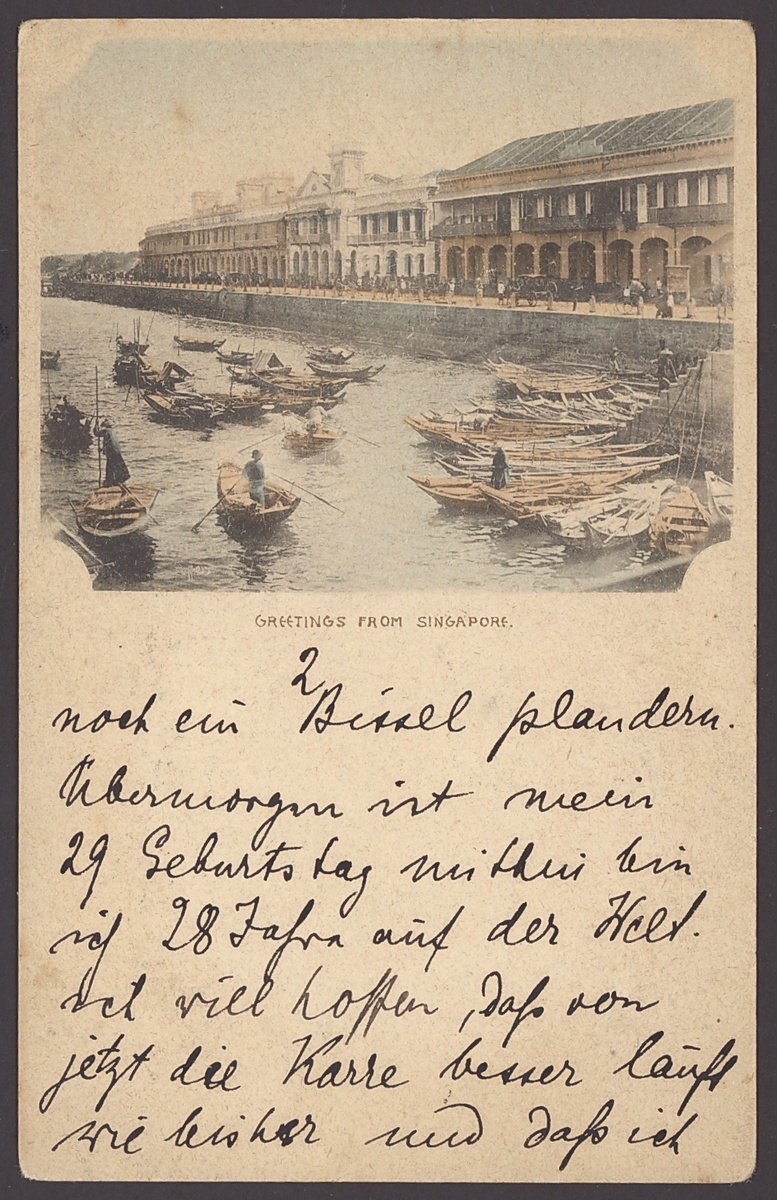 GREETINGS FROM SINGAPORE.
2
noch ein Bissel plaudern.
Übermorgen ist mein
29 Geburtstag mithin bin
ich 28 Jahre auf der Welt.
ich will hoffen, daß von
jetzt die Karre besser läuft
wie bisher und daß ich